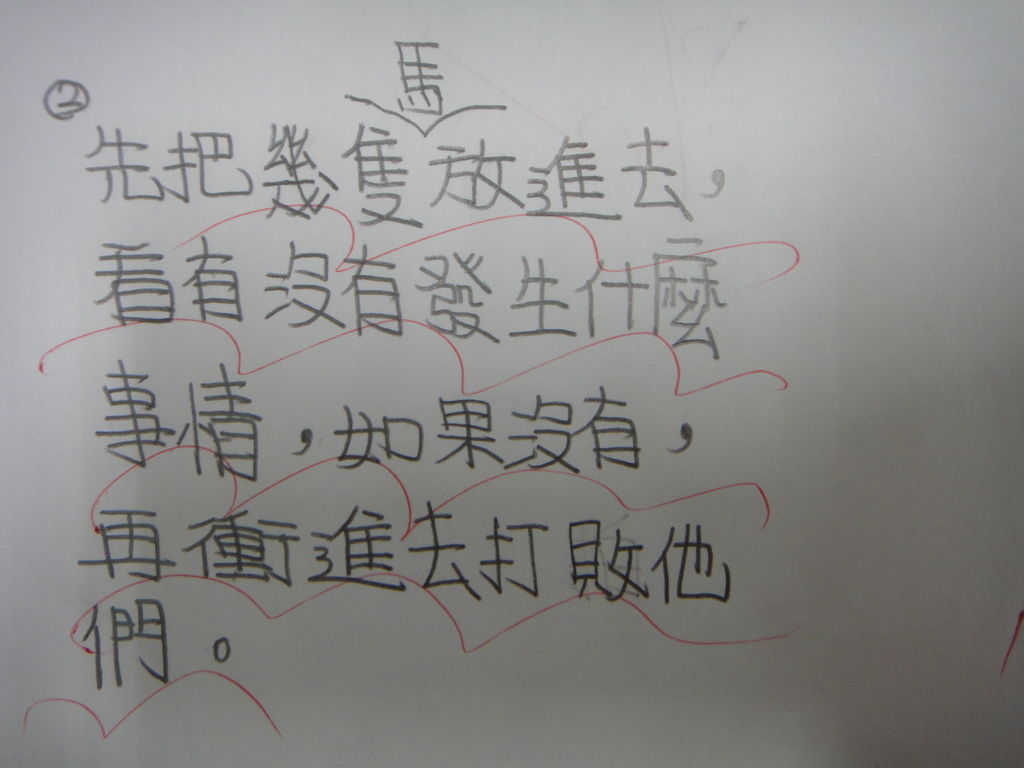 ②
馬
先把幾隻放進去，
看有沒有發生什麼
事情，如果沒有，
再衝進去打敗他
們。